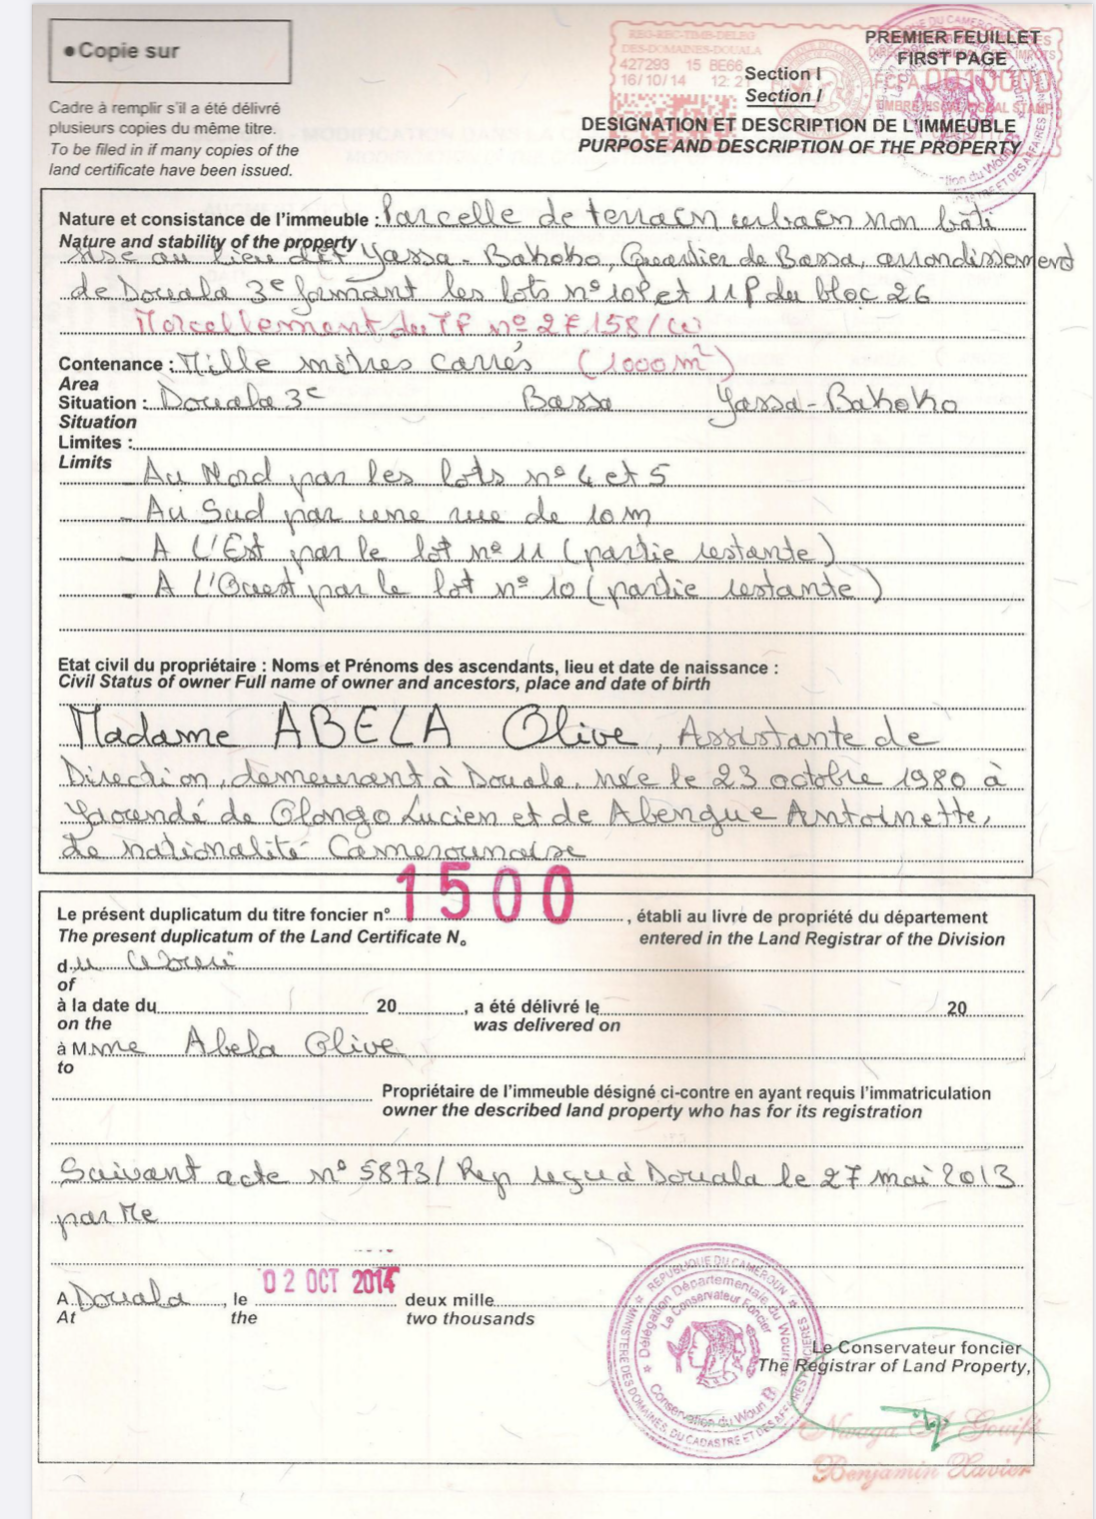 Copie sur
Cadre à remplir s'il a été délivré
plusieurs copies du même titre.
To be filed in if many copies of the
land certificate have been issued.
REG-REC-TIMB-DELEG
DES-DOMAINES-DOUALA
427293 15 BE66
16/10/14 12: 2
PREMIER FEUILLET
FIRST PAGE
Section I
Section I
DESIGNATION ET DESCRIPTION DE L'IMMEUBLE
PURPOSE AND DESCRIPTION OF THE PROPERTY
Nature et consistance de l'immeuble : Parcelle de terrain urbain non bâti
Nature and stability of the property
sise au lieu dit Yassa-Bakoko, Quartier de Bassa, arrondissement
de Douala 3e formant les lots n° 10P et 11P du bloc 26
Morcellement du TF n° 27158/
Contenance : Mille mètres carrés (1000 m²)
Area
Situation : Douala 3e Bassa Yassa-Bakoko
Situation
Limites :
Limits
- Au Nord par les lots n° 4 et 5
- Au Sud par une rue de 10m
- A L'Est par le lot n° 11 (partie restante)
- A L'Ouest par le lot n° 10 (partie restante)
Etat civil du propriétaire : Noms et Prénoms des ascendants, lieu et date de naissance :
Civil Status of owner Full name of owner and ancestors, place and date of birth
Madame ABELA Olive, Assistante de
Direction, demeurant à Douala, née le 23 octobre 1980 à
Yaoundé de Olongo Lucien et de Abengue Antoinette,
de nationalité Camerounaise
Le présent duplicatum du titre foncier n° 1500, établi au livre de propriété du département
The present duplicatum of the Land Certificate N° entered in the Land Registrar of the Division
du Wouri
of
à la date du 20 , a été délivré le 20
on the was delivered on
à Mme Abela Olive
to
Propriétaire de l'immeuble désigné ci-contre en ayant requis l'immatriculation
owner the described land property who has for its registration
Suivant acte n° 5873/Rep reçu à Douala le 27 mai 2013
par Me
A Douala , le 02 OCT 2014 deux mille
At the two thousands
REPUBLIQUE DU CAMEROUN
MINISTERE DES DOMAINES, DU CADASTRE ET DES AFFAIRES FONCIERES
Délégation Départementale du Wouri
Le Conservateur Foncier
Conservation du Wouri
Le Conservateur foncier
The Registrar of Land Property,
Benjamin Xavier